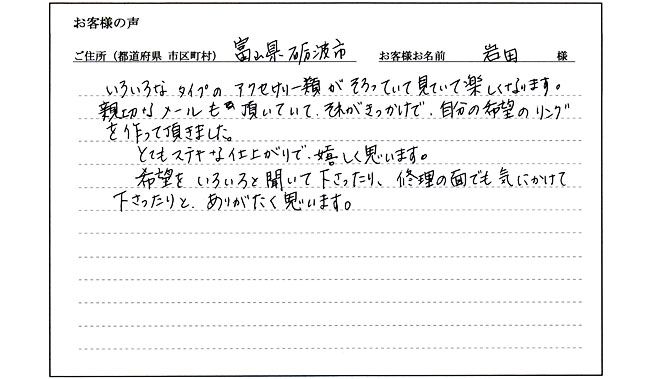 お客様の声
ご住所（都道府県 市区町村） 富山県砺波市 お客様お名前 岩田 様
いろいろな タイプの アクセサリー類が そろっていて見ていて楽しくなります。
親切なメールも 頂いていて、それがきっかけで、自分の希望の リング
を作って頂きました。
とてもステキな仕上がりで、嬉しく思います。
希望を いろいろと聞いて下さったり、修理の面でも気にかけて
下さったりと、ありがたく思います。